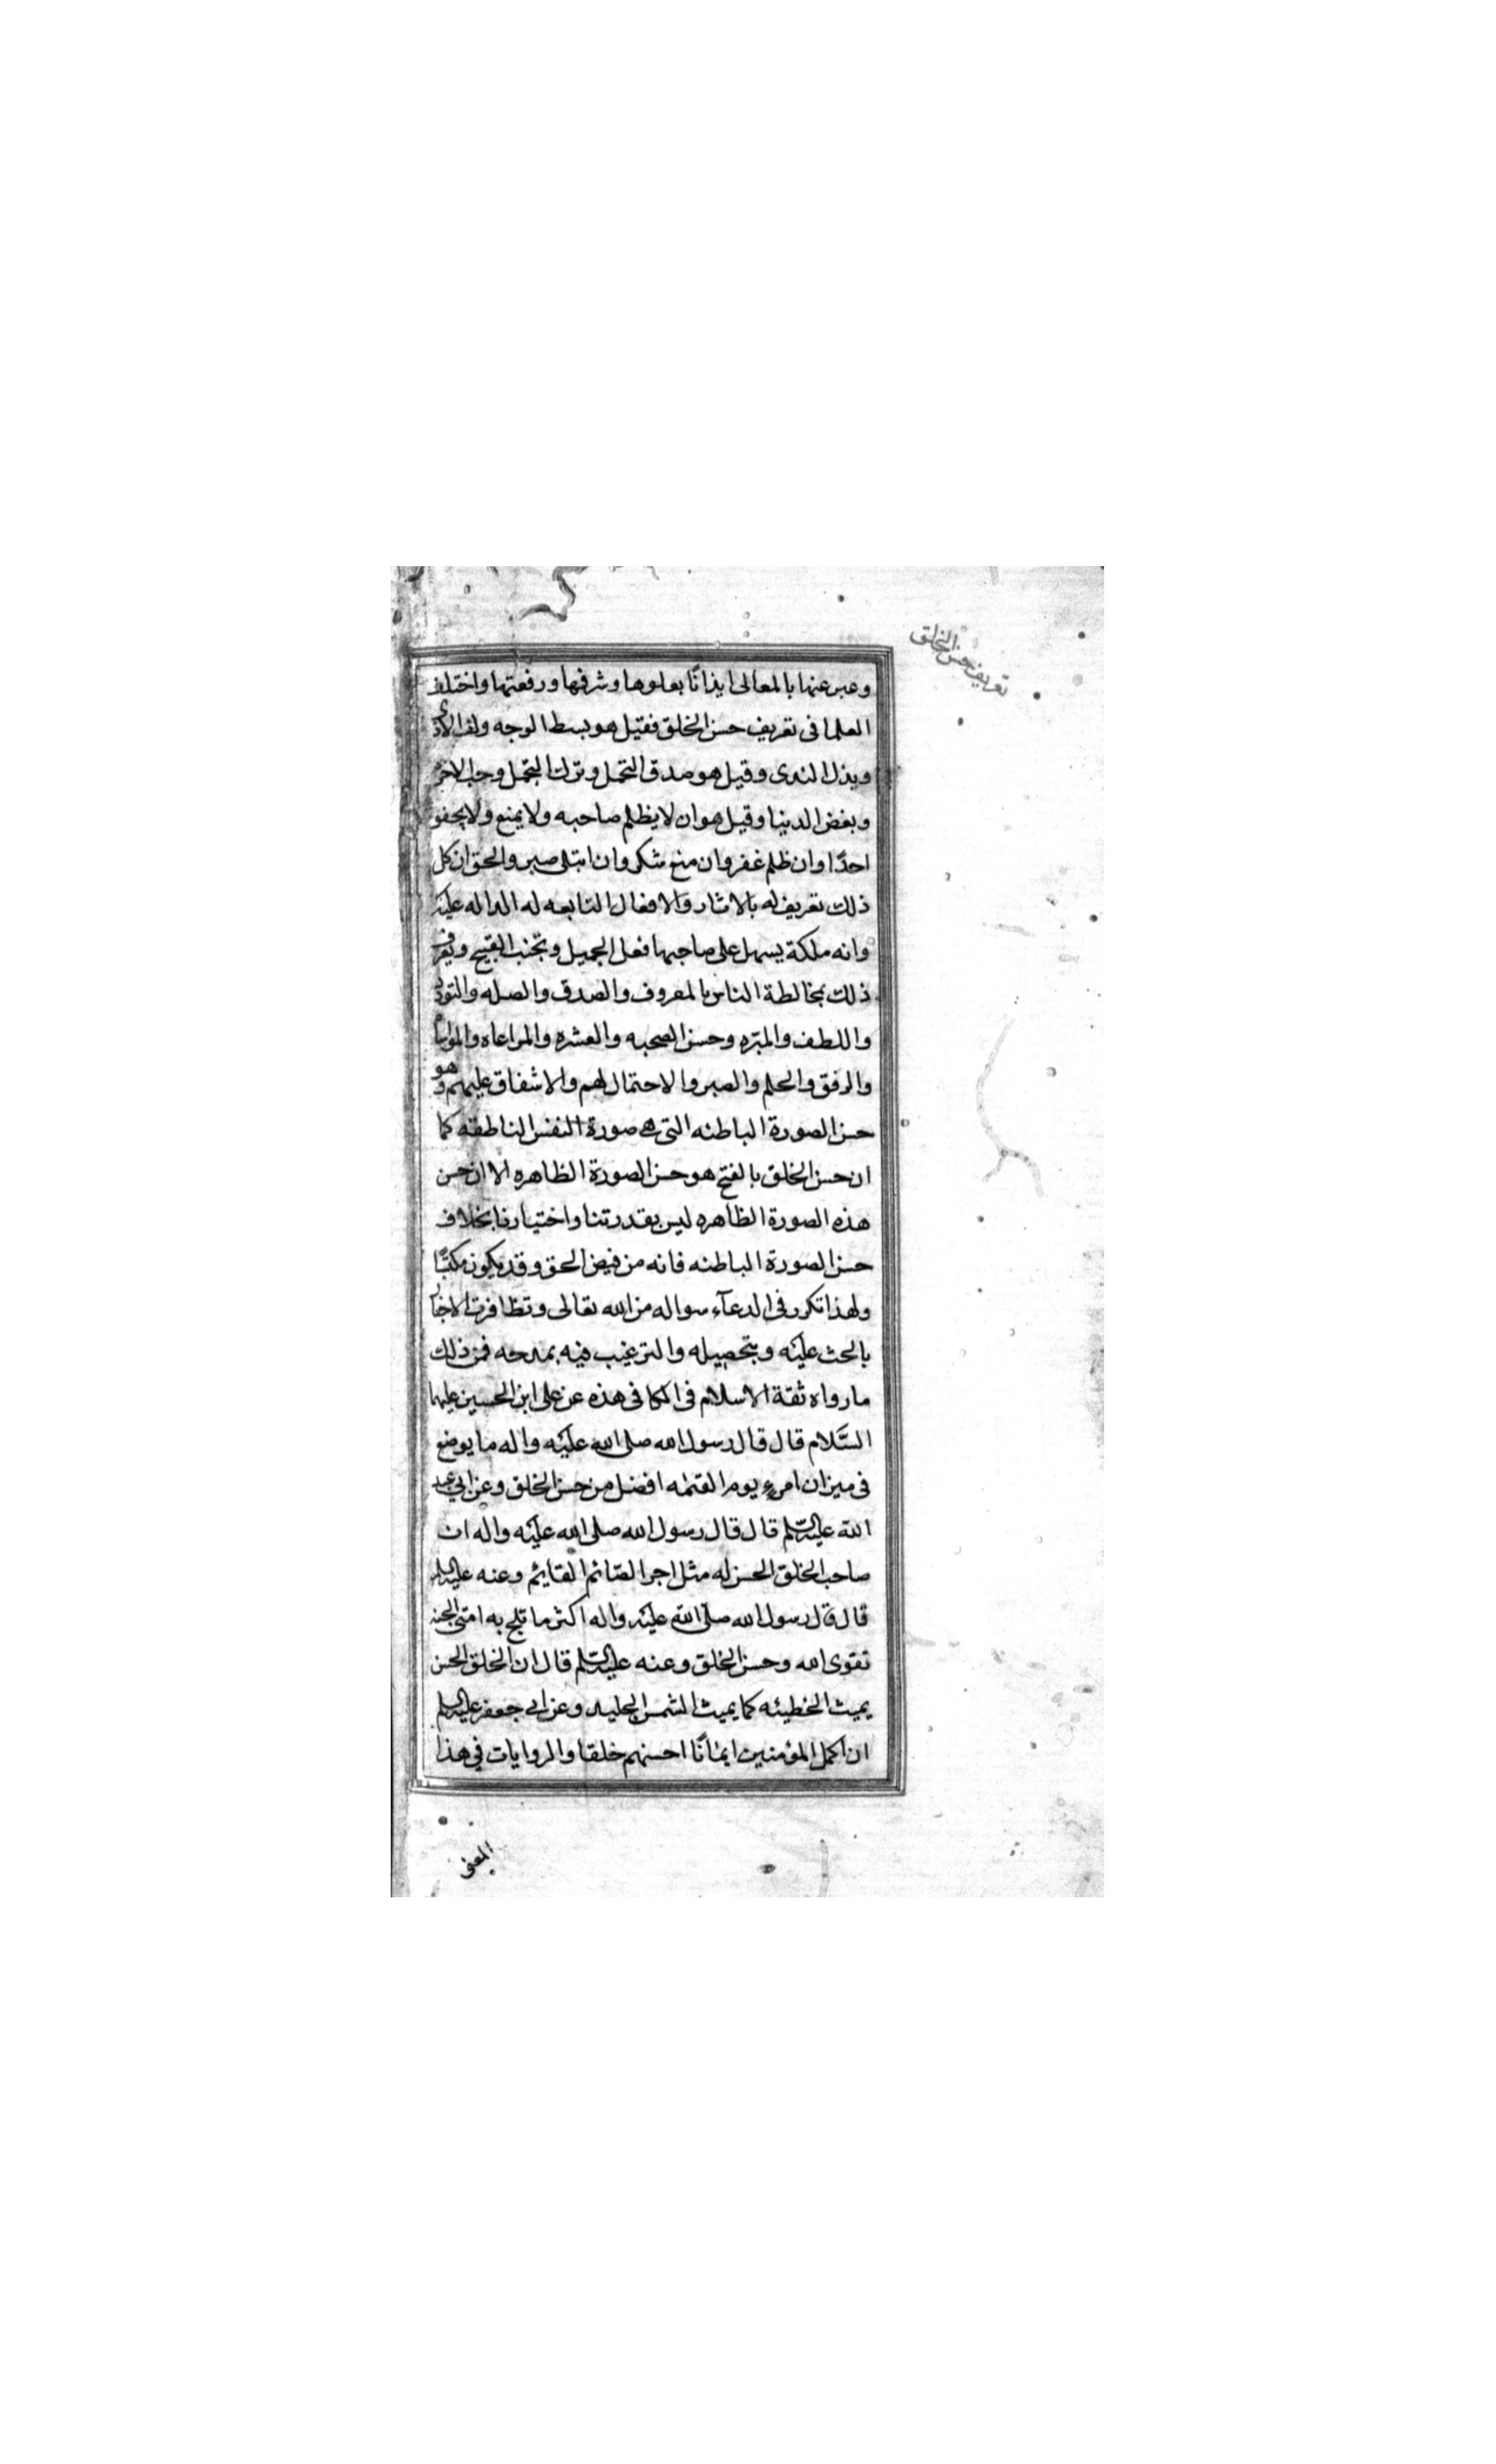 تعريف حسن الخلق
وعبر عنها بالمعالى ايذانًا بعلوها وشرفها ورفعتها واختلف
العلما فى تعريف حسن الخلق فقيل هو بسط الوجه وكف الاذى
وبذل الندى وقيل هو صدق التحمل وترك التجمل وحب الاخرة
وبغض الدنيا وقيل هو ان لا يظلم صاحبه ولا يمنع ولا يجفو
احدًا وان ظلم غفر وان منع شكر وان ابتلى صبر والحق ان كل
ذلك تعريف له بالاثار والافعال التابعه له الداله عليه
وانه ملكة يسهل على صاحبها فعل الجميل وتجنب القبيح ويعرف
ذلك بمخالطة الناس بالمعروف والصدق والصله والتودد
واللطف والمبرّه وحسن الصحبه والعشره والمراعاه والمواساة
والرفق والحلم والصبر والاحتمال لهم والاشفاق عليهم وهو
حسن الصورة الباطنه التى هى صورة النفس الناطقه كما
ان حسن الخلق بالفتح هو حسن الصورة الظاهره الا ان حسن
هذه الصورة الظاهره ليس بقدرتنا واختيارنا بخلاف
حسن الصورة الباطنه فانه من فيض الحق وقد يكون مكتسبًا
ولهذا تكرر فى الدعآء سواله من الله تعالى وتظافرت الاخبار
بالحث عليه وبتحصيله والترغيب فيه بمدحه فمن ذلك
ما رواه ثقة الاسلام فى الكافى هذه عن على ابن الحسين عليهما
السَّلام قال قال رسول الله صلى الله عليه واله ما يوضع
فى ميزان امرءٍ يوم القيمه افضل من حسن الخلق وعن ابي عبد
الله عليه السّلم قال قال رسول الله صلى الله عليه واله ان
صاحب الخلق الحسن له مثل اجر الصّائم القايئم وعنه عليه السلم
قال قال رسول الله صلّى الله عليه واله اكثر ما تلج به امتى الجنه
تقوى الله وحسن الخلق وعنه عليه السّلم قال ان الخلق الحسن
يميث الخطيئه كما يميث الشمس الجليد وعن ابى جعفر عليه السلم
ان اكمل المؤمنين ايمانًا احسنهم خلقا والروايات في هذا
المعنى